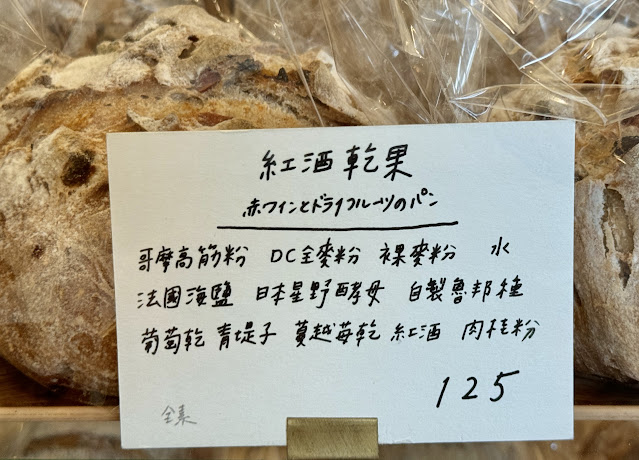 紅酒乾果
赤ワインとドライフルーツのパン
哥摩高筋粉 DC全麥粉 裸麥粉 水
法國海鹽 日本星野酵母 自製魯邦種
葡萄乾 青堤子 蔓越莓乾 紅酒 肉桂粉
125
全素